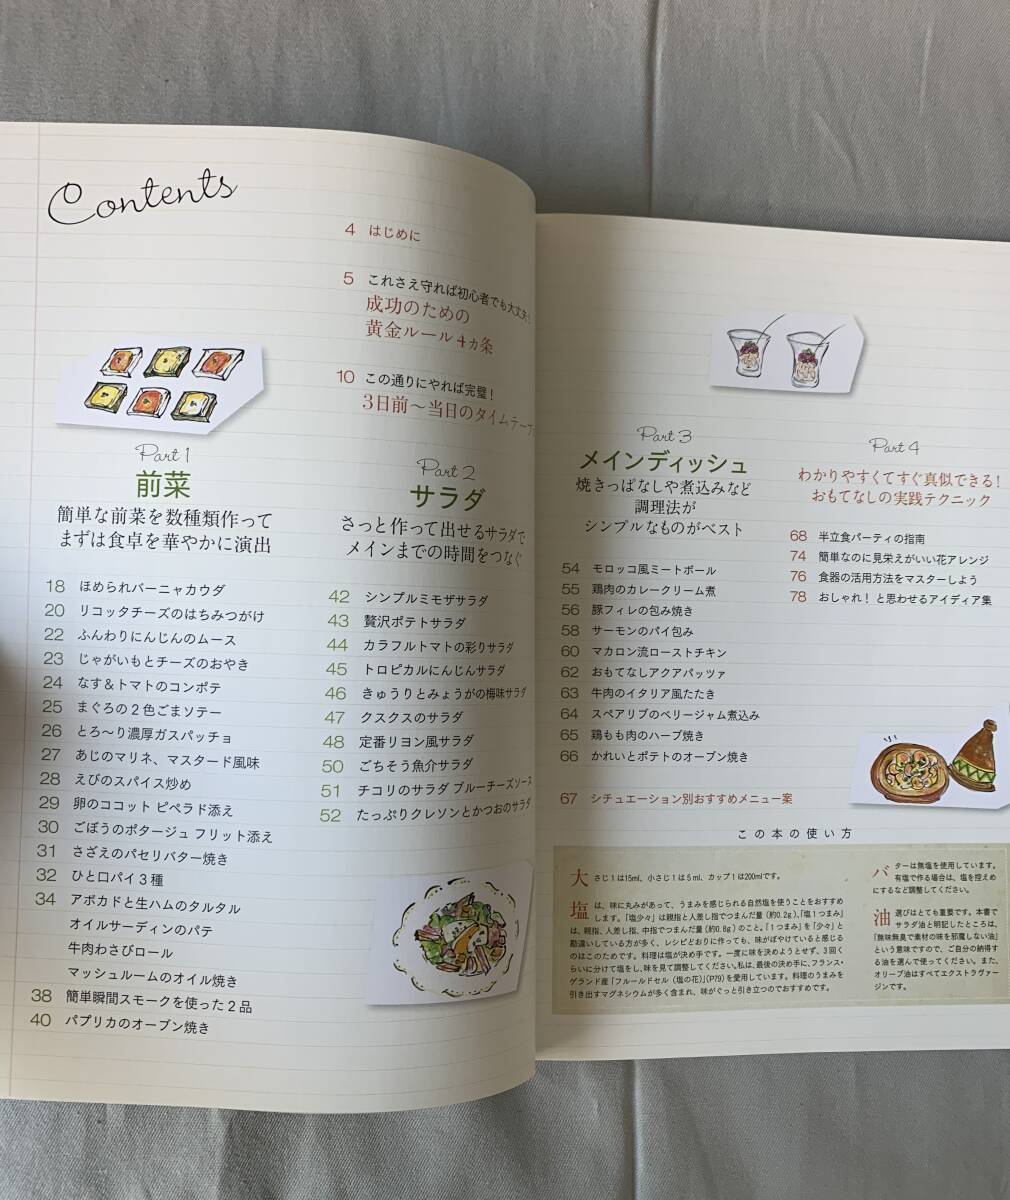 Contents
4 はじめに
5 これさえ守れば初心者でも大丈夫!
成功のための
黄金ルール4ヵ条
10 この通りにやれば完璧!
3日前〜当日のタイムテーブ
Part 1
前菜
簡単な前菜を数種類作って
まずは食卓を華やかに演出
18 ほめられバーニャカウダ
20 リコッタチーズのはちみつがけ
22 ふんわりにんじんのムース
23 じゃがいもとチーズのおやき
24 なす&トマトのコンポテ
25 まぐろの2色ごまソテー
26 とろ〜り濃厚ガスパッチョ
27 あじのマリネ、マスタード風味
28 えびのスパイス炒め
29 卵のココット ピペラド添え
30 ごぼうのポタージュ フリット添え
31 さざえのパセリバター焼き
32 ひと口パイ3種
34 アボカドと生ハムのタルタル
オイルサーディンのパテ
牛肉わさびロール
マッシュルームのオイル焼き
38 簡単瞬間スモークを使った2品
40 パプリカのオーブン焼き
Part 2
サラダ
さっと作って出せるサラダで
メインまでの時間をつなぐ
42 シンプルミモザサラダ
43 贅沢ポテトサラダ
44 カラフルトマトの彩りサラダ
45 トロピカルにんじんサラダ
46 きゅうりとみょうがの梅味サラダ
47 クスクスのサラダ
48 定番リヨン風サラダ
50 ごちそう魚介サラダ
51 チコリのサラダ ブルーチーズソース
52 たっぷりクレソンとかつおのサラダ
Part 3
メインディッシュ
焼きっぱなしや煮込みなど
調理法が
シンプルなものがベスト
54 モロッコ風ミートボール
55 鶏肉のカレークリーム煮
56 豚フィレの包み焼き
58 サーモンのパイ包み
60 マカロン流ローストチキン
62 おもてなしアクアパッツァ
63 牛肉のイタリア風たたき
64 スペアリブのベリージャム煮込み
65 鶏もも肉のハーブ焼き
66 かれいとポテトのオーブン焼き
67 シチュエーション別おすすめメニュー案
Part 4
わかりやすくてすぐ真似できる!
おもてなしの実践テクニック
68 半立食パーティの指南
74 簡単なのに見栄えがいい花アレンジ
76 食器の活用方法をマスターしよう
78 おしゃれ!と思わせるアイディア集
この本の使い方
大さじ1は15ml、小さじ1は5ml、カップ1は200mlです。
塩は、味に丸みがあって、うまみを感じられる自然塩を使うことをおすすめ
します。「塩少々」は親指と人差し指でつまんだ量(約0.2g)、「塩1つまみ」
は、親指、人差し指、中指でつまんだ量(約0.8g)のこと。「1つまみ」を「少々」と
勘違いしている方が多く、レシピどおりに作っても、味がぼやけていると感じる
のはこのためです。料理は塩が決め手です。一度に味を決めようとせず、3回く
らいに分けて塩をし、味を見て調整してください。私は、最後の決め手に、フランス・
ゲランド産「フルールドセル(塩の花)」(P79)を愛用しています。料理のうまみを
引き出すマグネシウムが多く含まれ、味がぐっと引き立つのでおすすめです。
バターは無塩を使用しています。
有塩で作る場合は、塩を控えめ
にするなど調整してください。
油選びはとても重要です。本書で
サラダ油と明記したところは、
「無味無臭で素材の味を邪魔しない油」
という意味ですので、ご自分の納得す
る油を選んで使ってください。また、
オリーブ油はすべてエクストラヴァー
ジンです。